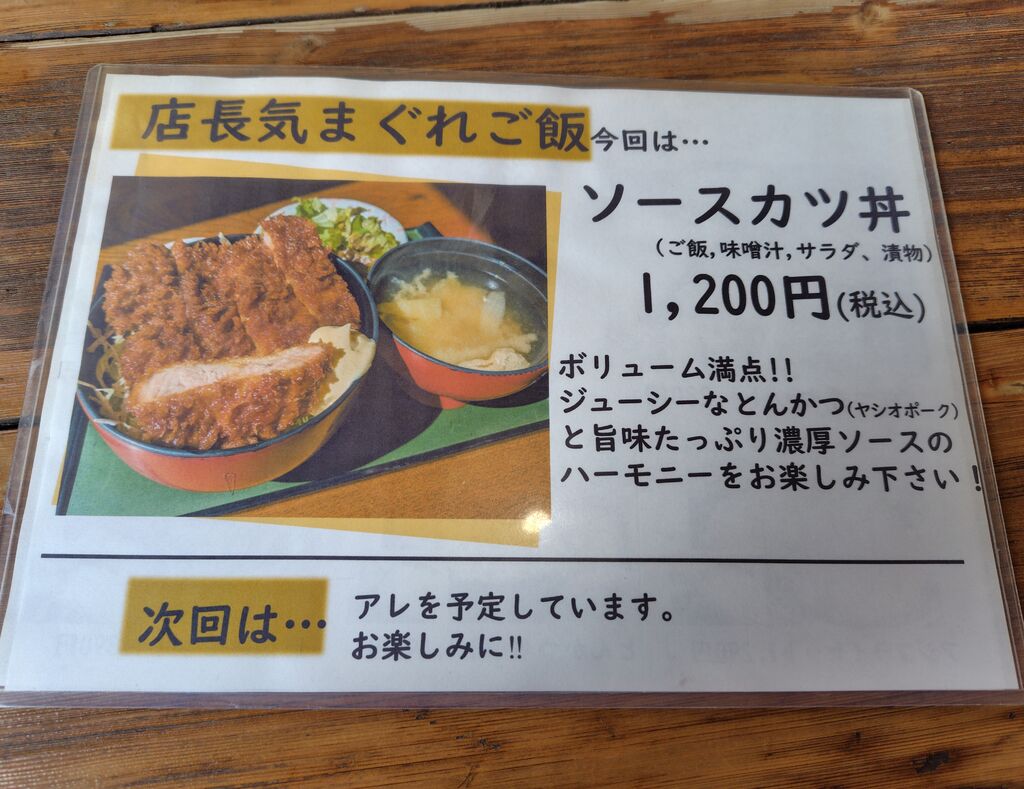 店長気まぐれご飯今回は…
ソースカツ丼
(ご飯,味噌汁,サラダ、漬物)
1,200円(税込)
ボリューム満点!!
ジューシーなとんかつ(ヤシオポーク)
と旨味たっぷり濃厚ソースの
ハーモニーをお楽しみ下さい！
次回は…
アレを予定しています。
お楽しみに!!